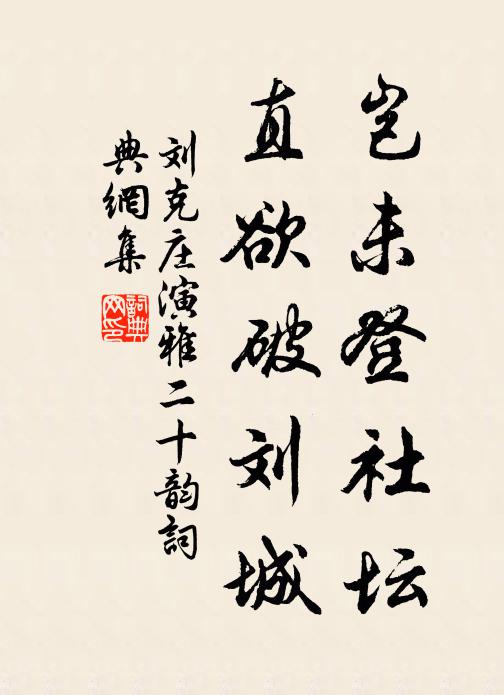 岂未登社坛
直欲破刘城
刘克庄演雅二十韵词
典網集
詞典网印